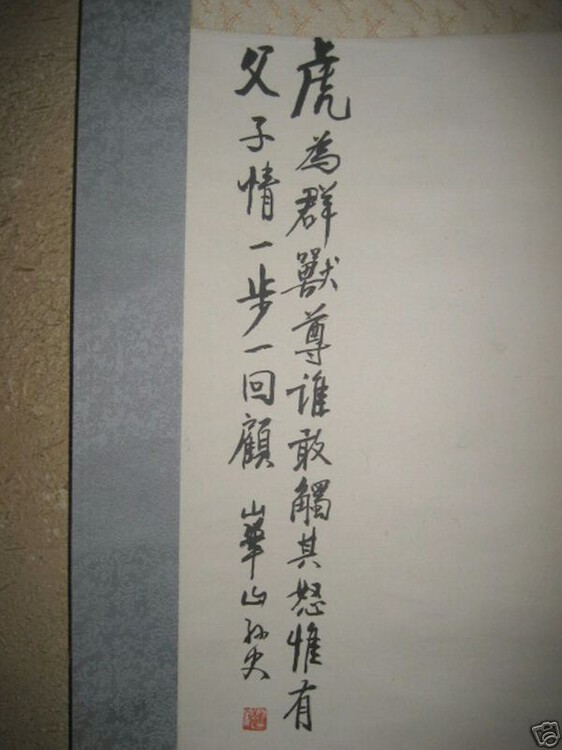 虎為群獸尊谁敢觸其怒惟有
父子情一步一回顧 山華山孙史